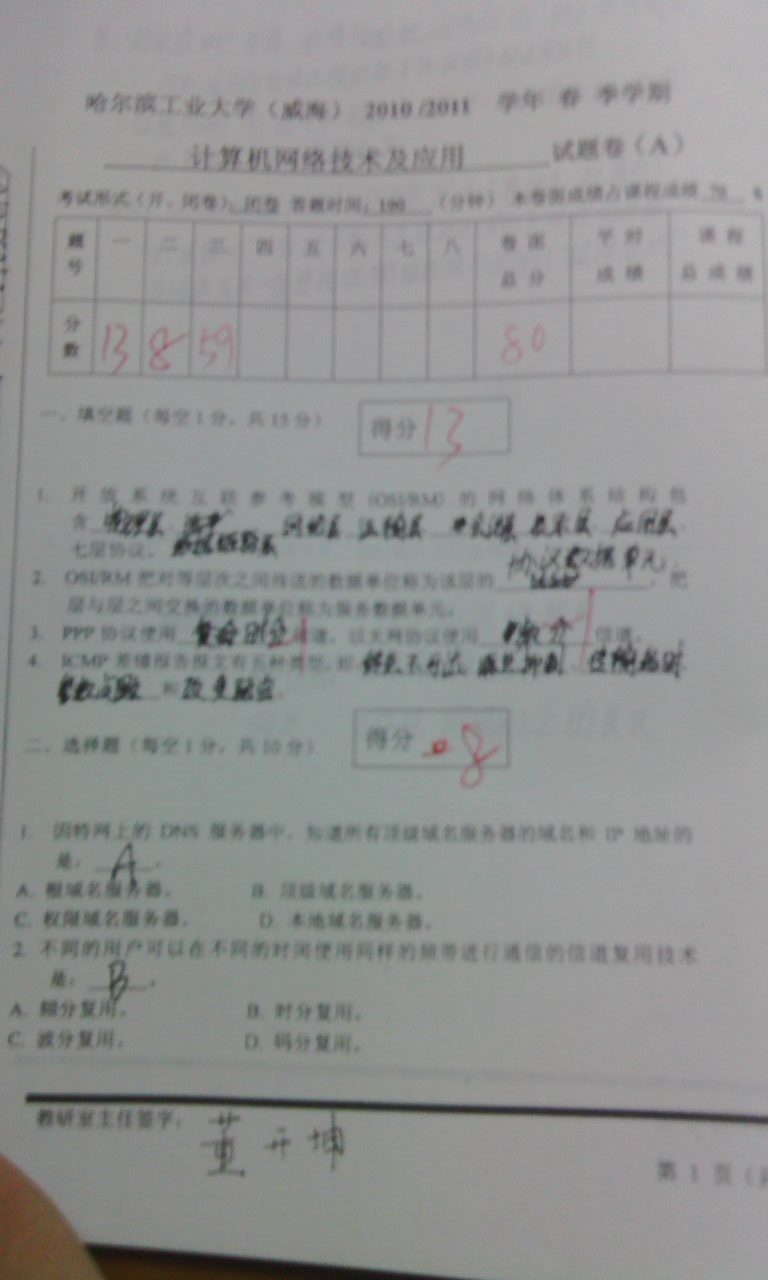 哈尔滨工业大学（威海） 2010 /2011 学年 春 季学期
计算机网络技术及应用 试题卷（A）
考试形式（开、闭卷）：闭卷 答题时间：180 （分钟） 本卷面成绩占课程成绩 70 %
题号 一 二 三 四 五 六 七 八 卷面总分 平时成绩 课程总成绩
分数 13 8 59 80
一、填空题（每空1分，共15分） 得分 13
1. 开放系统互联参考模型（OSI/RM）的网络体系结构包
含 物理层 数据链路层 网络层 运输层 会话层 表示层 应用层
七层协议。
2. OSI/RM 把对等层次之间传送的数据单位称为该层的 协议数据单元 ，把
层与层之间交换的数据单位称为服务数据单元。
3. PPP 协议使用 信道，以太网协议使用 信道。
4. ICMP 差错报告报文有五种类型，即 终点不可达 源点抑制
和 改变路由 。
二、选择题（每空1分，共10分） 得分 8
1. 因特网上的 DNS 服务器中，知道所有顶级域名服务器的域名和 IP 地址的
是： A 。
A. 根域名服务器。 B. 顶级域名服务器。
C. 权限域名服务器。 D. 本地域名服务器。
2. 不同的用户可以在不同的时间使用同样的频带进行通信的信道复用技术
是： B 。
A. 频分复用。 B. 时分复用。
C. 波分复用。 D. 码分复用。
教研室主任签字： 董开坤
第 1 页（